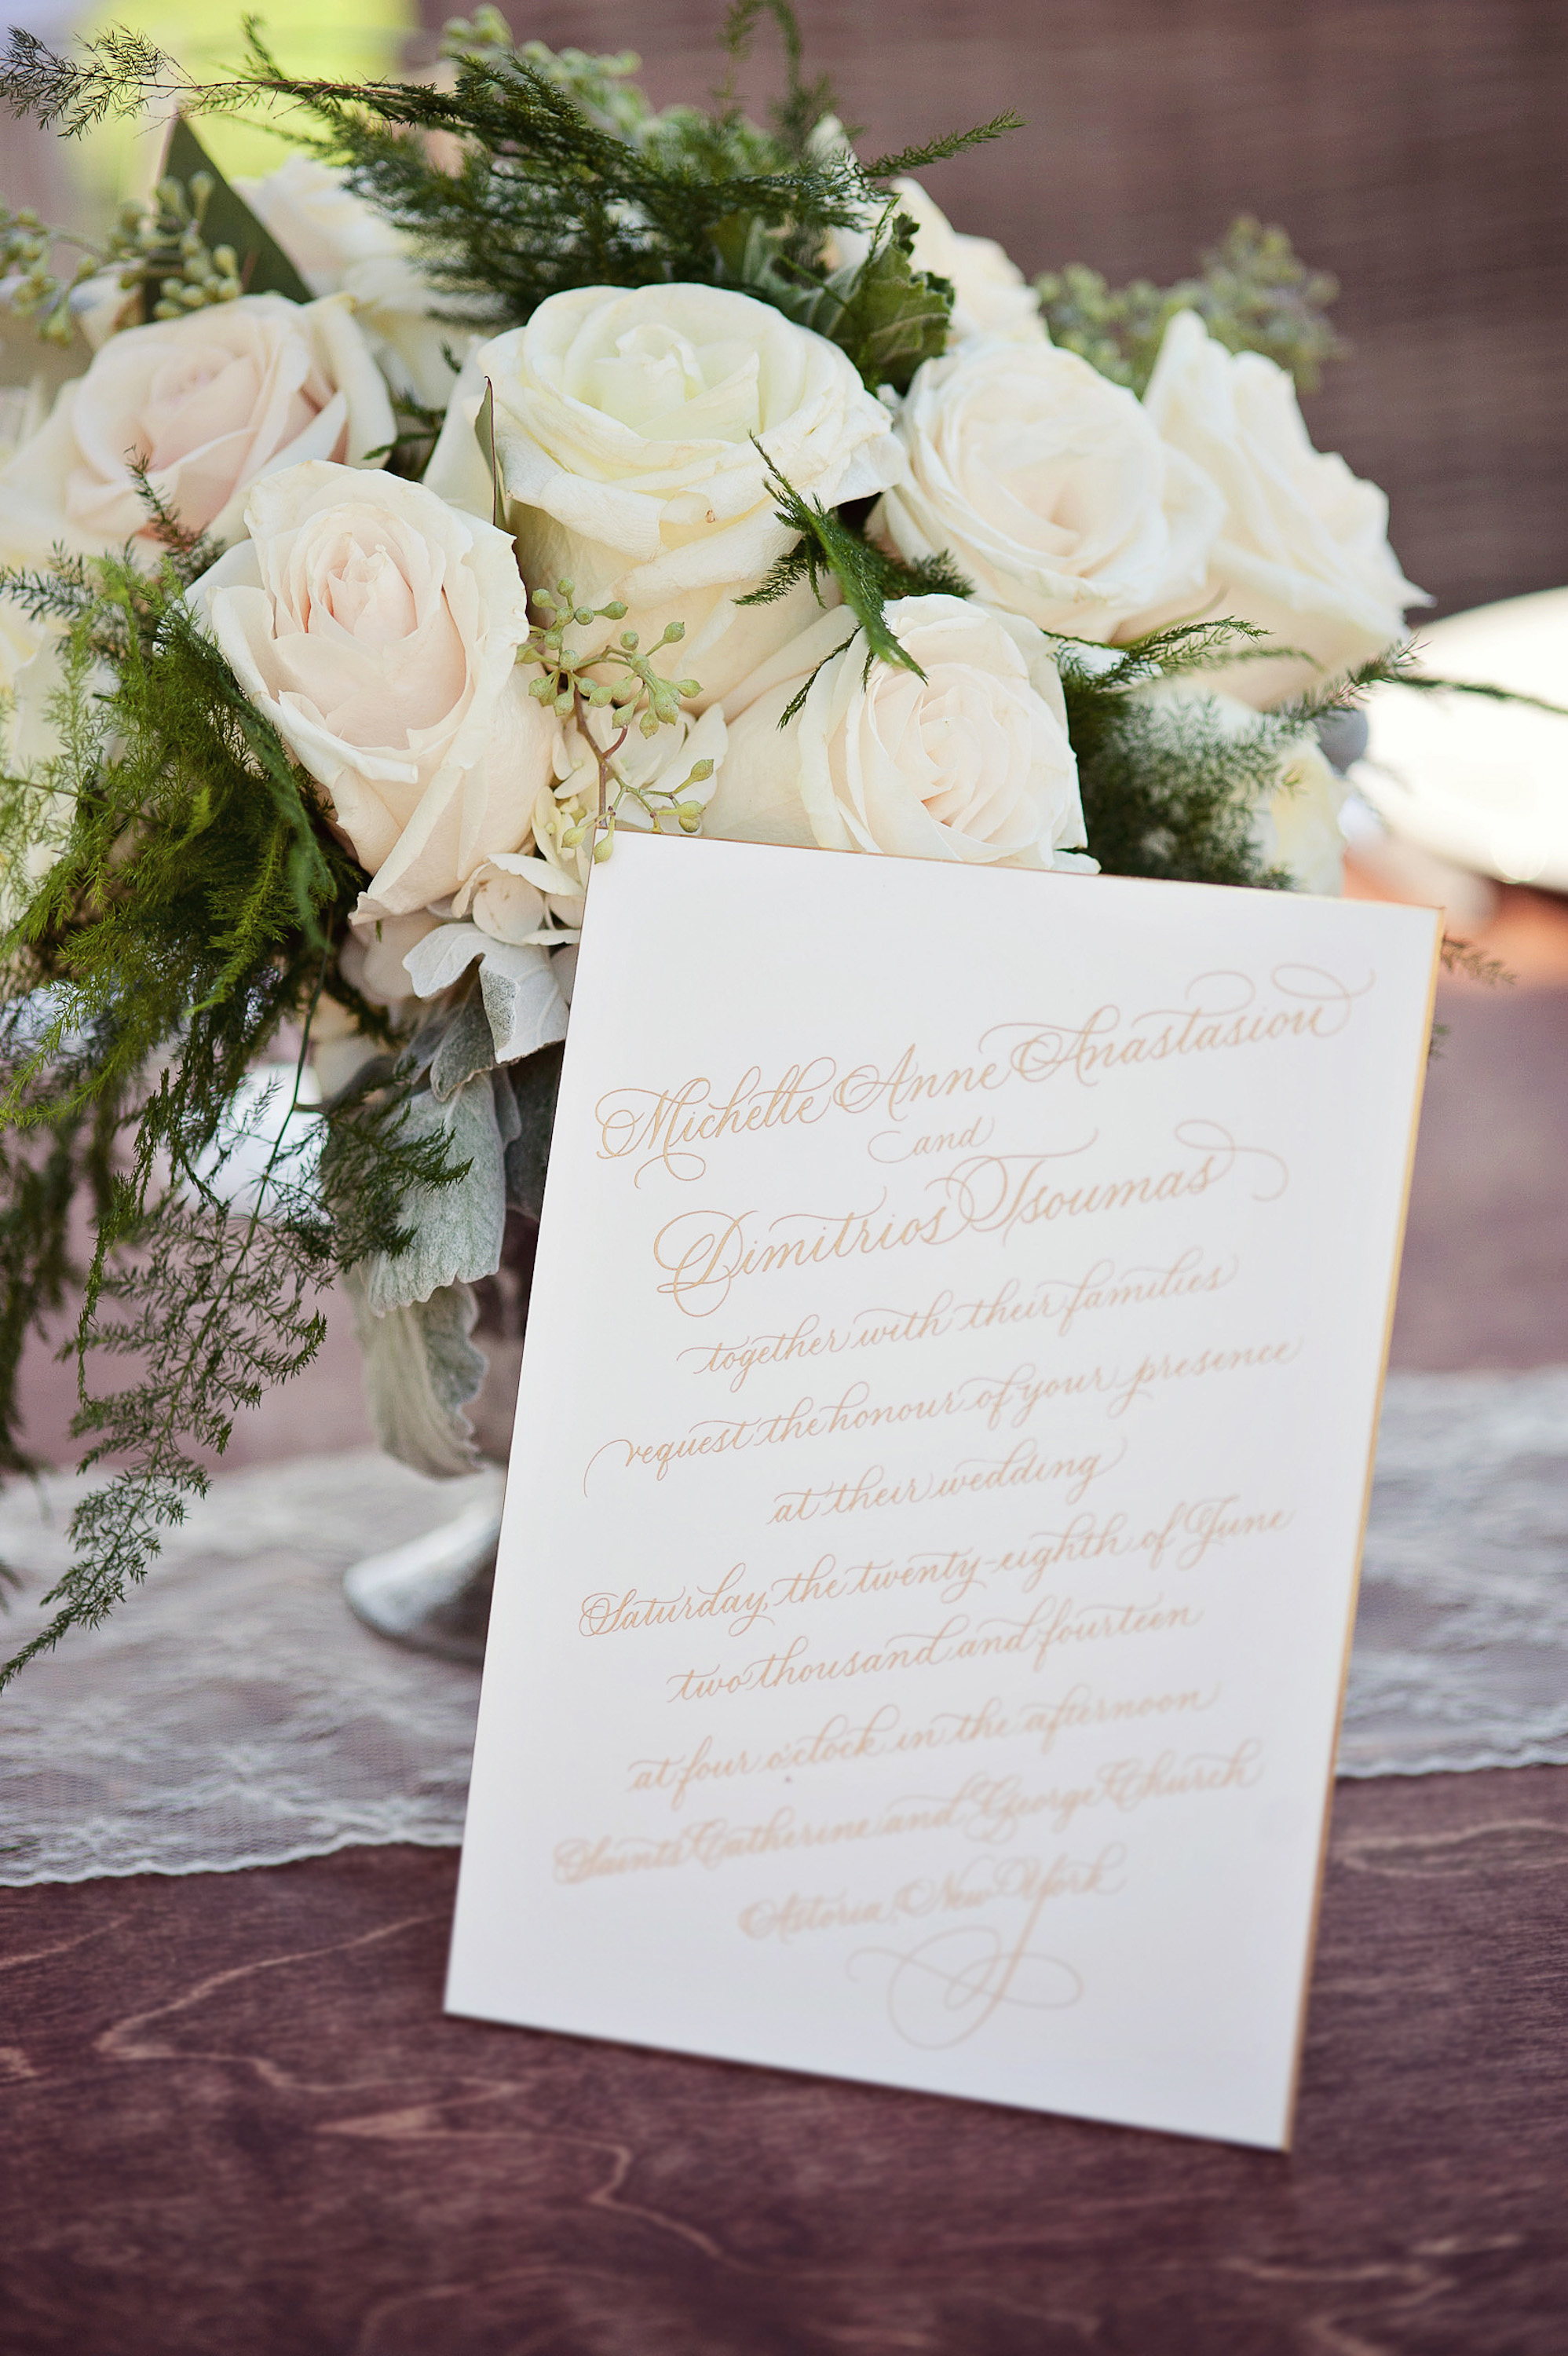 Michelle Anne Anastasiou
and
Dimitrios Tsoumas
together with their families
request the honour of your presence
at their wedding
Saturday, the twenty-eighth of June
two thousand and fourteen
at four o'clock in the afternoon
Saints Catherine and George Church
Astoria, New York